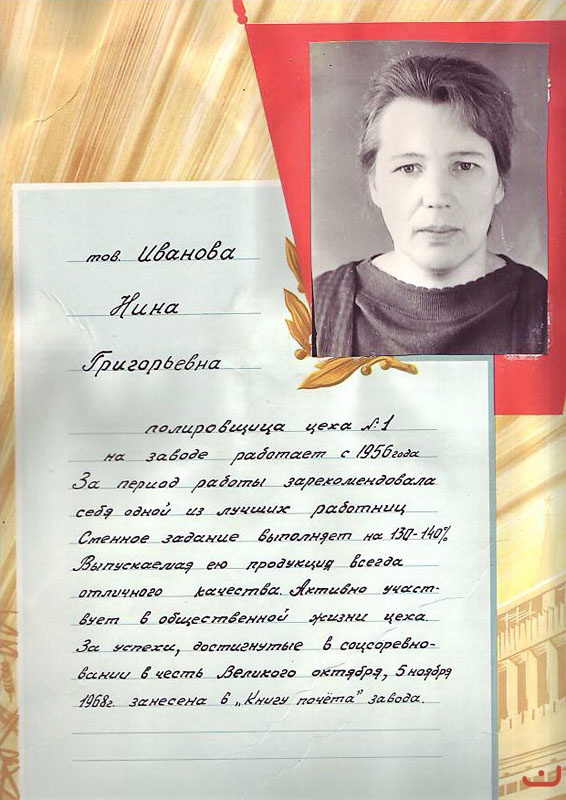 тов. Иванова
Нина
Григорьевна
полировщица цеха №1
на заводе работает с 1956 года
За период работы зарекомендовала
себя одной из лучших работниц
Сменное задание выполняет на 130-140%
Выпускаемая ею продукция всегда
отличного качества. Активно участ-
вует в общественной жизни цеха.
За успехи, достигнутые в соцсоревно-
вании в честь Великого октября, 5 ноября
1968г. занесена в „Книгу почёта" завода.